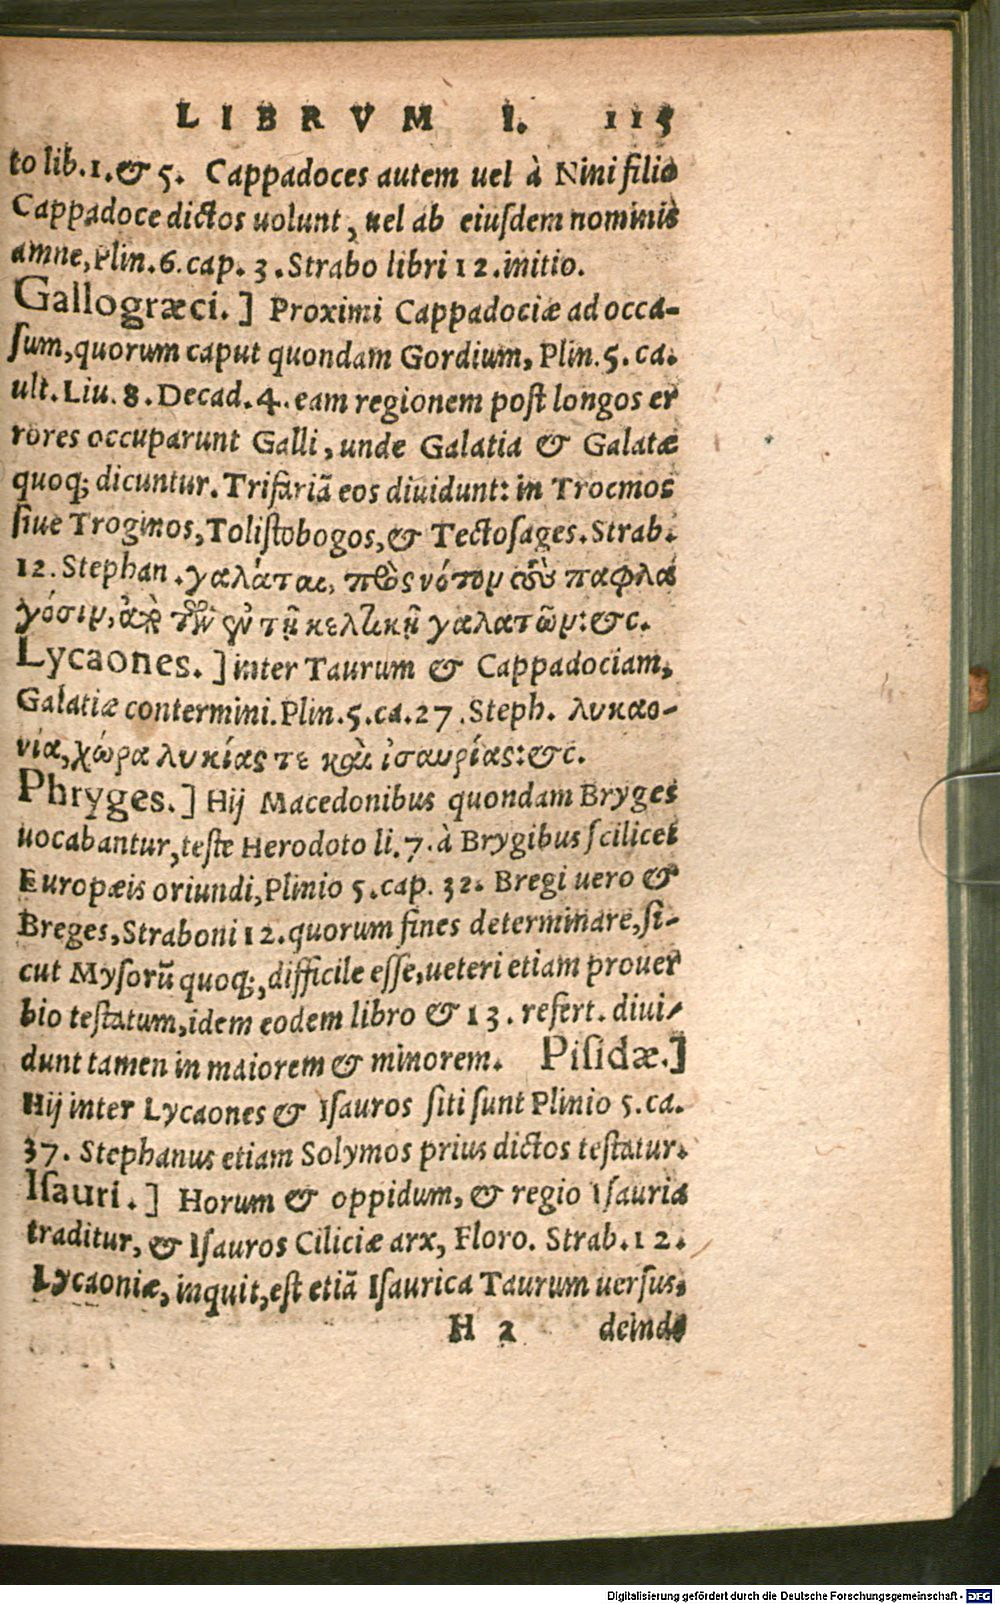 LIBRVM I. 115
to lib.1.& 5. Cappadoces autem uel à Nini filio
Cappadoce dictos uolunt, uel ab eiusdem nominis
amne, Plin.6.cap. 3. Strabo libri 12.initio.
Gallogræci.] Proximi Cappadociæ ad occa-
ſum, quorum caput quondam Gordium, Plin.5.ca.
ult. Liu. 8. Decad. 4. eam regionem poſt longos er
rores occuparunt Galli, unde Galatia & Galatæ
quoq; dicuntur. Trifariã eos diuidunt: in Trocmos
ſiue Troginos, Toliſtobogos, & Tectoſages. Strab.
12. Stephan. γαλάται, πρὸς νότον τοῦ παφλα
γόσιν, ἀπὸ τῶν ἐν τῇ κελτικῇ γαλατῶν: &c.
Lycaones.] inter Taurum & Cappadociam,
Galatiæ contermini. Plin.5.ca.27. Steph. λυκαο-
νία, χώρα λυκίας τε καὶ ἰσαυρίας: &c.
Phryges.] Hij Macedonibus quondam Bryges
uocabantur, teſte Herodoto li.7. à Brygibus ſcilicet
Europæis oriundi, Plinio 5.cap. 32. Bregi uero &
Breges, Straboni 12. quorum fines determinare, ſi-
cut Myſorũ quoq;, difficile eſſe, ueteri etiam prouer
bio teſtatum, idem eodem libro & 13. refert. diui-
dunt tamen in maiorem & minorem. Piſidæ.]
Hij inter Lycaones & Iſauros ſiti ſunt Plinio 5.ca.
37. Stephanus etiam Solymos prius dictos teſtatur.
Iſauri.] Horum & oppidum, & regio Iſauria
traditur, & Iſauros Ciliciæ arx, Floro. Strab.12.
Lycaoniæ, inquit, eſt etiã Iſaurica Taurum uerſus.
H 2 deinde
Digitalisierung gefördert durch die Deutsche Forschungsgemeinschaft - DFG